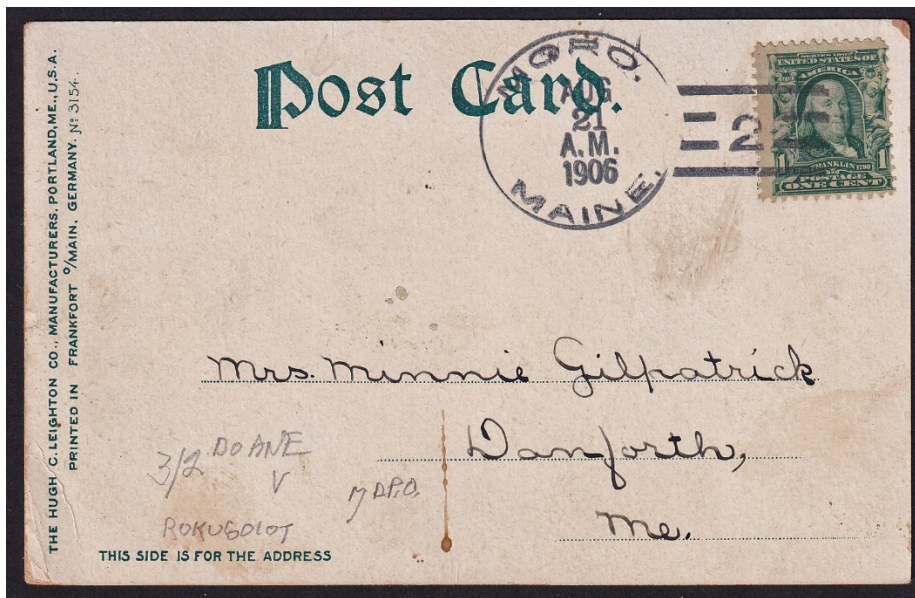 THE HUGH C. LEIGHTON CO., MANUFACTURERS, PORTLAND, ME., U.S.A.
PRINTED IN FRANKFORT O/MAIN, GERMANY. No 3154.
Post Card.
MORO.
AUG
21
A.M.
1906
MAINE.
2
SERIES 1902
UNITED STATES OF
AMERICA
FRANKLIN
1 POSTAGE 1
ONE CENT
Mrs. Minnie Gilpatrick
Danforth,
Me.
3/2 DOANE
V
THIS SIDE IS FOR THE ADDRESS